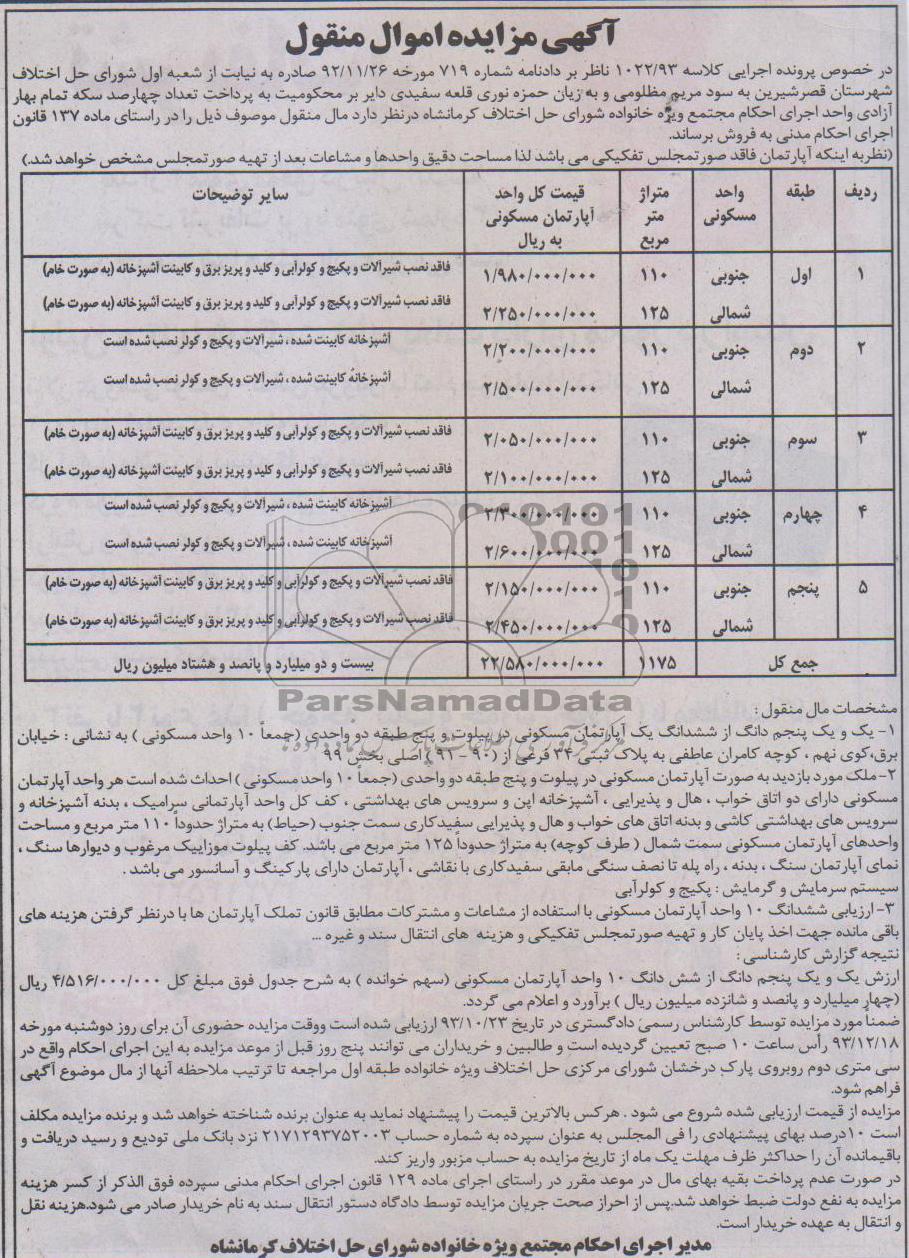 آگهی مزایده اموال منقول
در خصوص پرونده اجرایی کلاسه ۱۰۲۲/۹۳ ناظر بر دادنامه شماره ۷۱۹ مورخه ۹۲/۱۱/۲۶ صادره به نیابت از شعبه اول شورای حل اختلاف
شهرستان قصرشیرین به سود مریم مظلومی و به زیان حمزه نوری قلعه سفیدی دایر بر محکومیت به پرداخت تعداد چهارصد سکه تمام بهار
آزادی واحد اجرای احکام مجتمع ویژه خانواده شورای حل اختلاف کرمانشاه درنظر دارد مال منقول موصوف ذیل را در راستای ماده ۱۳۷ قانون
اجرای احکام مدنی به فروش برساند.
(نظربه اینکه آپارتمان فاقد صورتمجلس تفکیکی می باشد لذا مساحت دقیق واحدها و مشاعات بعد از تهیه صورتمجلس مشخص خواهد شد.)
ردیف طبقه واحد مسکونی متراژ متر مربع قیمت کل واحد آپارتمان مسکونی به ریال سایر توضیحات
۱ اول جنوبی ۱۱۰ ۱/۹۸۰/۰۰۰/۰۰۰ فاقد نصب شیرآلات و پکیج و کولرآبی و کلید و پریز برق و کابینت آشپزخانه (به صورت خام)
شمالی ۱۲۵ ۲/۲۵۰/۰۰۰/۰۰۰ فاقد نصب شیرآلات و پکیج و کولرآبی و کلید و پریز برق و کابینت آشپزخانه (به صورت خام)
۲ دوم جنوبی ۱۱۰ ۲/۲۰۰/۰۰۰/۰۰۰ آشپزخانه کابینت شده ، شیرآلات و پکیج و کولر نصب شده است
شمالی ۱۲۵ ۲/۵۰۰/۰۰۰/۰۰۰ آشپزخانه کابینت شده ، شیرآلات و پکیج و کولر نصب شده است
۳ سوم جنوبی ۱۱۰ ۲/۰۵۰/۰۰۰/۰۰۰ فاقد نصب شیرآلات و پکیج و کولرآبی و کلید و پریز برق و کابینت آشپزخانه (به صورت خام)
شمالی ۱۲۵ ۲/۱۰۰/۰۰۰/۰۰۰ فاقد نصب شیرآلات و پکیج و کولرآبی و کلید و پریز برق و کابینت آشپزخانه (به صورت خام)
۴ چهارم جنوبی ۱۱۰ ۲/۳۰۰/۰۰۰/۰۰۰ آشپزخانه کابینت شده ، شیرآلات و پکیج و کولر نصب شده است
شمالی ۱۲۵ ۲/۶۰۰/۰۰۰/۰۰۰ آشپزخانه کابینت شده ، شیرآلات و پکیج و کولر نصب شده است
۵ پنجم جنوبی ۱۱۰ ۲/۱۵۰/۰۰۰/۰۰۰ فاقد نصب شیرآلات و پکیج و کولرآبی و کلید و پریز برق و کابینت آشپزخانه (به صورت خام)
شمالی ۱۲۵ ۲/۴۵۰/۰۰۰/۰۰۰ فاقد نصب شیرآلات و پکیج و کولرآبی و کلید و پریز برق و کابینت آشپزخانه (به صورت خام)
جمع کل ۱۱۷۵ ۲۲/۵۸۰/۰۰۰/۰۰۰ بیست و دو میلیارد و پانصد و هشتاد میلیون ریال
ParsNamadData
مشخصات مال منقول :
۱- یک و یک پنجم دانگ از ششدانگ یک آپارتمان مسکونی در پیلوت و پنج طبقه دو واحدی (جمعاً ۱۰ واحد مسکونی ) به نشانی : خیابان
برق،کوی نهم ، کوچه کامران عاطفی به پلاک ثبتی ۳۴ فرعی از (۹۰ - ۹۱) اصلی بخش ۹۹
۲-ملک مورد بازدید به صورت آپارتمان مسکونی در پیلوت و پنج طبقه دو واحدی (جمعاً ۱۰ واحد مسکونی ) احداث شده است هر واحد آپارتمان
مسکونی دارای دو اتاق خواب ، هال و پذیرایی ، آشپزخانه اپن و سرویس های بهداشتی ، کف کل واحد آپارتمانی سرامیک ، بدنه آشپزخانه و
سرویس های بهداشتی کاشی و بدنه اتاق های خواب و هال و پذیرایی سفیدکاری سمت جنوب (حیاط) به متراژ حدوداً ۱۱۰ متر مربع و مساحت
واحدهای آپارتمان مسکونی سمت شمال ( طرف کوچه) به متراژ حدوداً ۱۲۵ متر مربع می باشد. کف پیلوت موزاییک مرغوب و دیوارها سنگ ،
نمای آپارتمان سنگ ، بدنه ، راه پله تا نصف سنگی مابقی سفیدکاری با نقاشی ، آپارتمان دارای پارکینگ و آسانسور می باشد .
سیستم سرمایش و گرمایش : پکیج و کولرآبی
۳- ارزیابی ششدانگ ۱۰ واحد آپارتمان مسکونی با استفاده از مشاعات و مشترکات مطابق قانون تملک آپارتمان ها با درنظر گرفتن هزینه های
باقی مانده جهت اخذ پایان کار و تهیه صورتمجلس تفکیکی و هزینه های انتقال سند و غیره ...
نتیجه گزارش کارشناسی :
ارزش یک و یک پنجم دانگ از شش دانگ ۱۰ واحد آپارتمان مسکونی (سهم خوانده ) به شرح جدول فوق مبلغ کل ۴/۵۱۶/۰۰۰/۰۰۰ ریال
(چهار میلیارد و پانصد و شانزده میلیون ریال ) برآورد و اعلام می گردد.
ضمناً مورد مزایده توسط کارشناس رسمی دادگستری در تاریخ ۹۳/۱۰/۲۳ ارزیابی شده است ووقت مزایده حضوری آن برای روز دوشنبه مورخه
۹۳/۱۲/۱۸ رأس ساعت ۱۰ صبح تعیین گردیده است و طالبین و خریداران می توانند پنج روز قبل از موعد مزایده به این اجرای احکام واقع در
سی متری دوم روبروی پارک درخشان شورای مرکزی حل اختلاف ویژه خانواده طبقه اول مراجعه تا ترتیب ملاحظه آنها از مال موضوع آگهی
فراهم شود.
مزایده از قیمت ارزیابی شده شروع می شود . هرکس بالاترین قیمت را پیشنهاد نماید به عنوان برنده شناخته خواهد شد و برنده مزایده مکلف
است ۱۰درصد بهای پیشنهادی را فی المجلس به عنوان سپرده به شماره حساب ۲۱۷۱۲۹۳۷۵۲۰۰۳ نزد بانک ملی تودیع و رسید دریافت و
باقیمانده آن را حداکثر ظرف مهلت یک ماه از تاریخ مزایده به حساب مزبور واریز کند.
در صورت عدم پرداخت بقیه بهای مال در موعد مقرر در راستای اجرای ماده ۱۲۹ قانون اجرای احکام مدنی سپرده فوق الذکر از کسر هزینه
مزایده به نفع دولت ضبط خواهد شد.پس از احراز صحت جریان مزایده توسط دادگاه دستور انتقال سند به نام خریدار صادر می شود.هزینه نقل
و انتقال به عهده خریدار است.
مدیر اجرای احکام مجتمع ویژه خانواده شورای حل اختلاف کرمانشاه